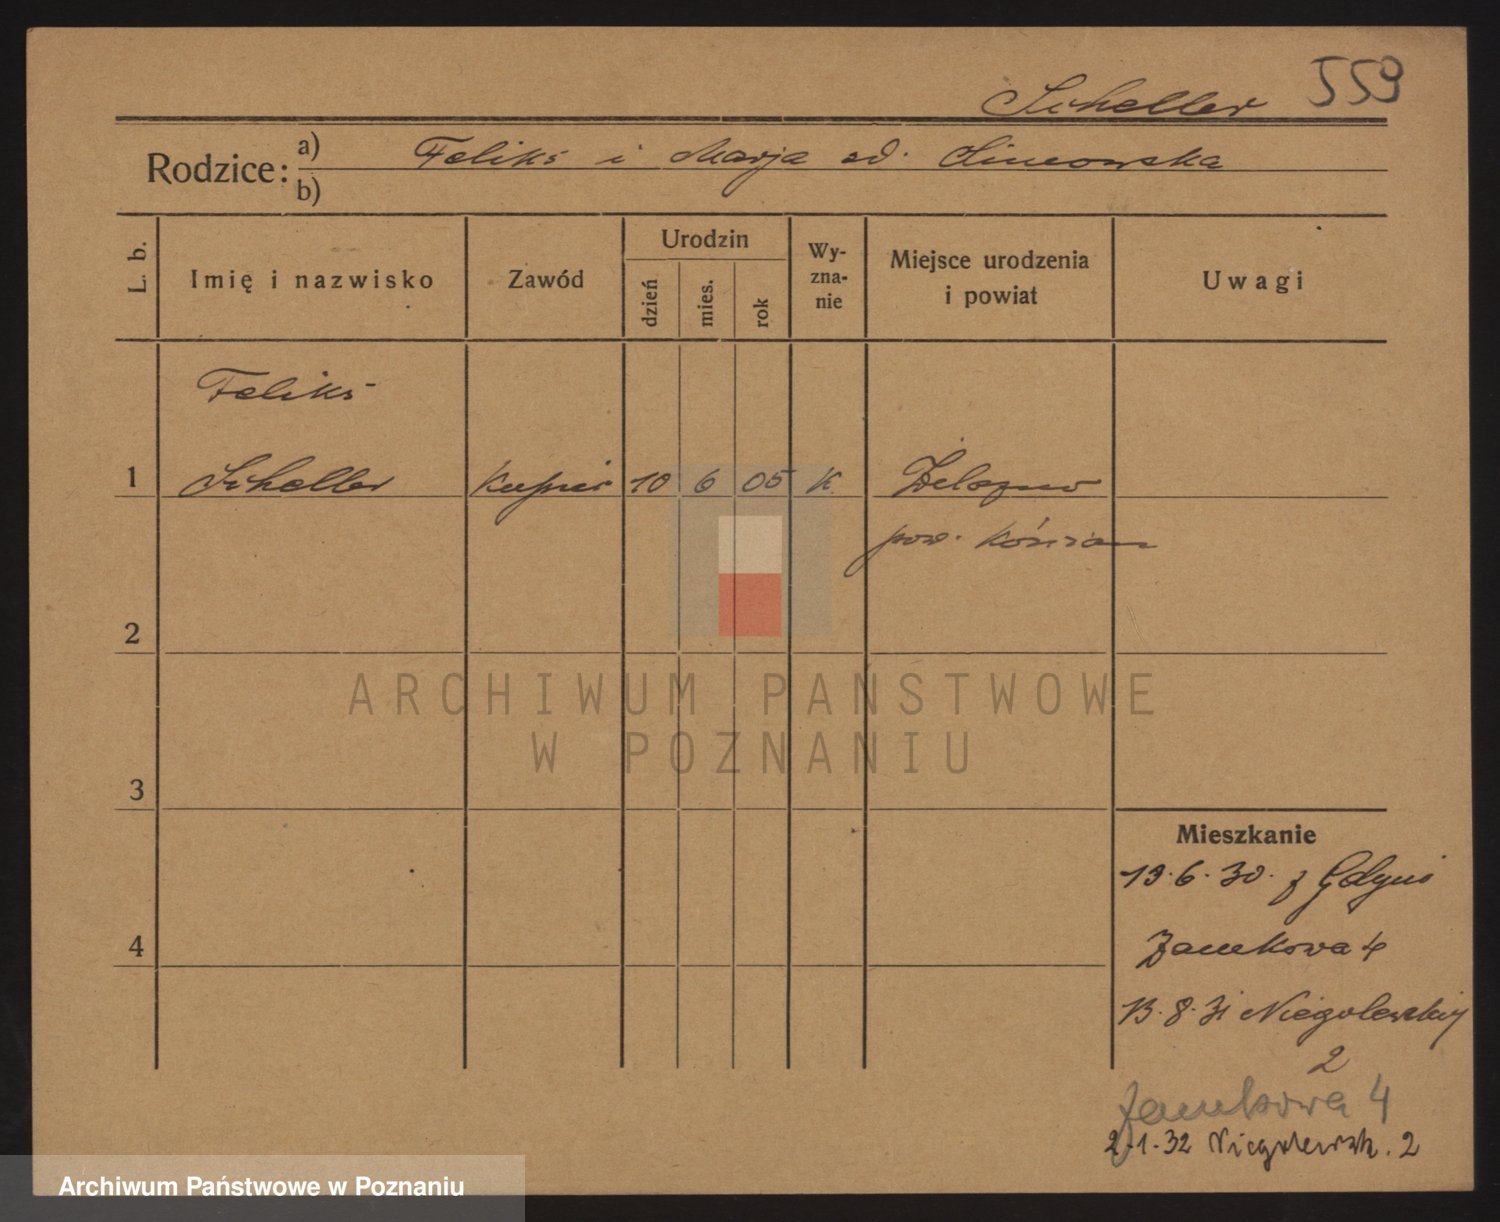 Scheller 559
Rodzice: a) Feliks i Marja
b)
L. b.
Imię i nazwisko
Zawód
Urodzin
dzień
mies.
rok
Wy-
zna-
nie
Miejsce urodzenia
i powiat
Uwagi
Feliks
1 Scheller kupiec 10 6 05 K Żelazno
pow. Kościan
2
3
4
Mieszkanie
19.6.30. z Gdyni
Zamkowa 4
13.8.31 Niegolewskich
2
Zamkowa 4
2.1.32 Niegolewsk. 2
ARCHIWUM PAŃSTWOWE
W POZNANIU
Archiwum Państwowe w Poznaniu